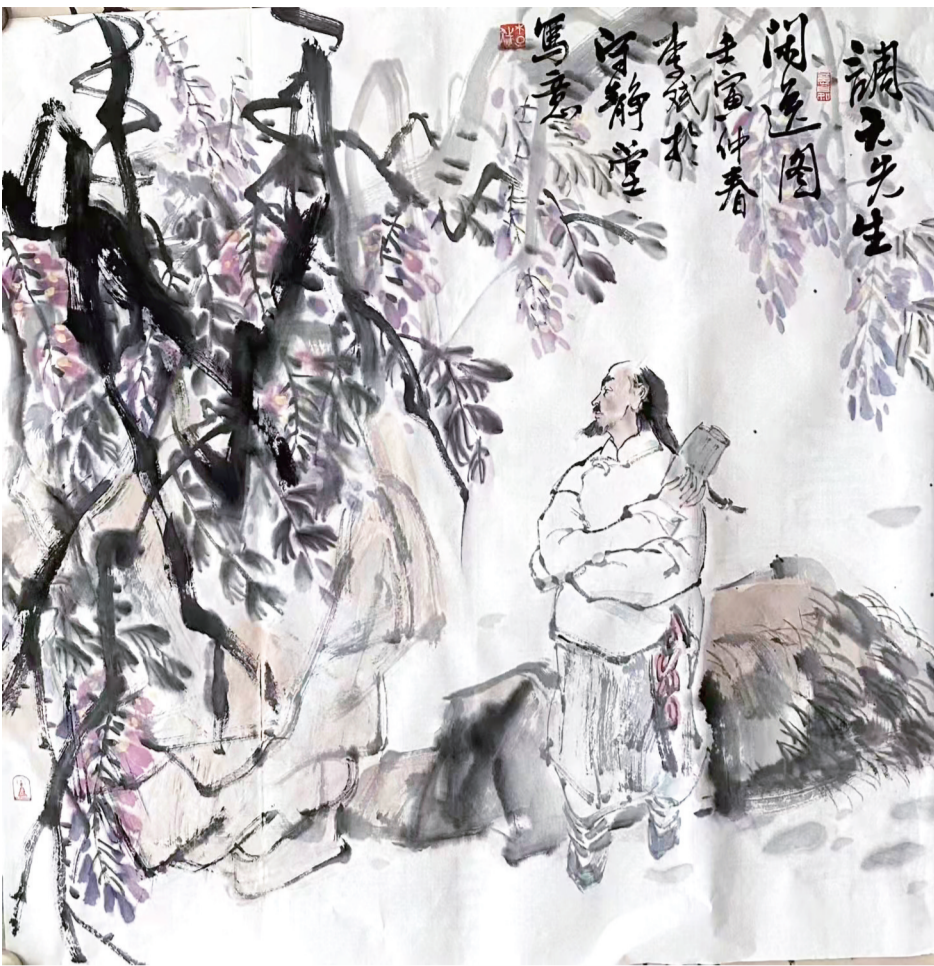 調元先生
闲逸图
壬寅仲春
李斌於
守静堂
寫意